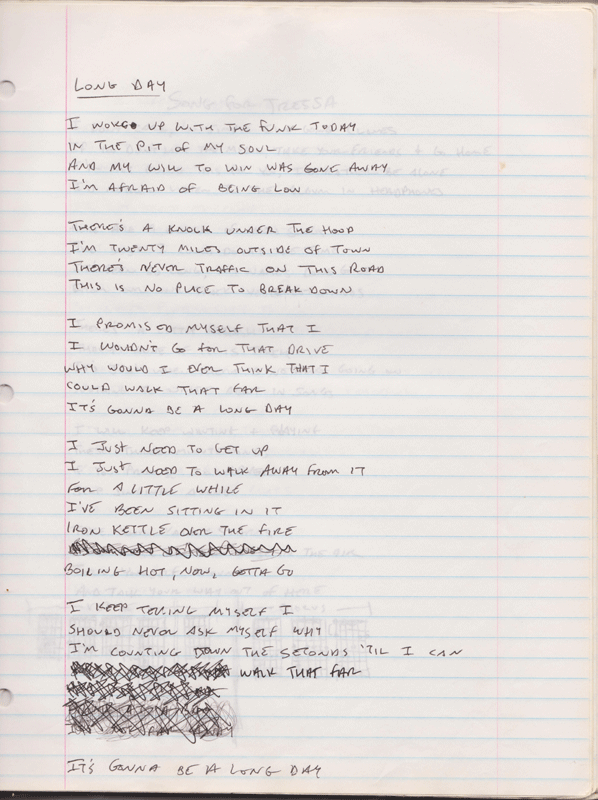 LONG DAY
I WOKE UP WITH THE FUNK TODAY
IN THE PIT OF MY SOUL
AND MY WILL TO WIN WAS GONE AWAY
I'M AFRAID OF BEING LOW
THERE'S A KNOCK UNDER THE HOOD
I'M TWENTY MILES OUTSIDE OF TOWN
THERE'S NEVER TRAFFIC ON THIS ROAD
THIS IS NO PLACE TO BREAK DOWN
I PROMISED MYSELF THAT I
I WOULDN'T GO FOR THAT DRIVE
WHY WOULD I EVER THINK THAT I
COULD WALK THAT FAR
IT'S GONNA BE A LONG DAY
I JUST NEED TO GET UP
I JUST NEED TO WALK AWAY FROM IT
FOR A LITTLE WHILE
I'VE BEEN SITTING IN IT
IRON KETTLE OVER THE FIRE
BOILING HOT, NOW, GOTTA GO
I KEEP TELLING MYSELF I
SHOULD NEVER ASK MYSELF WHY
I'M COUNTING DOWN THE SECONDS 'TIL I CAN
WALK THAT FAR
IT'S GONNA BE A LONG DAY